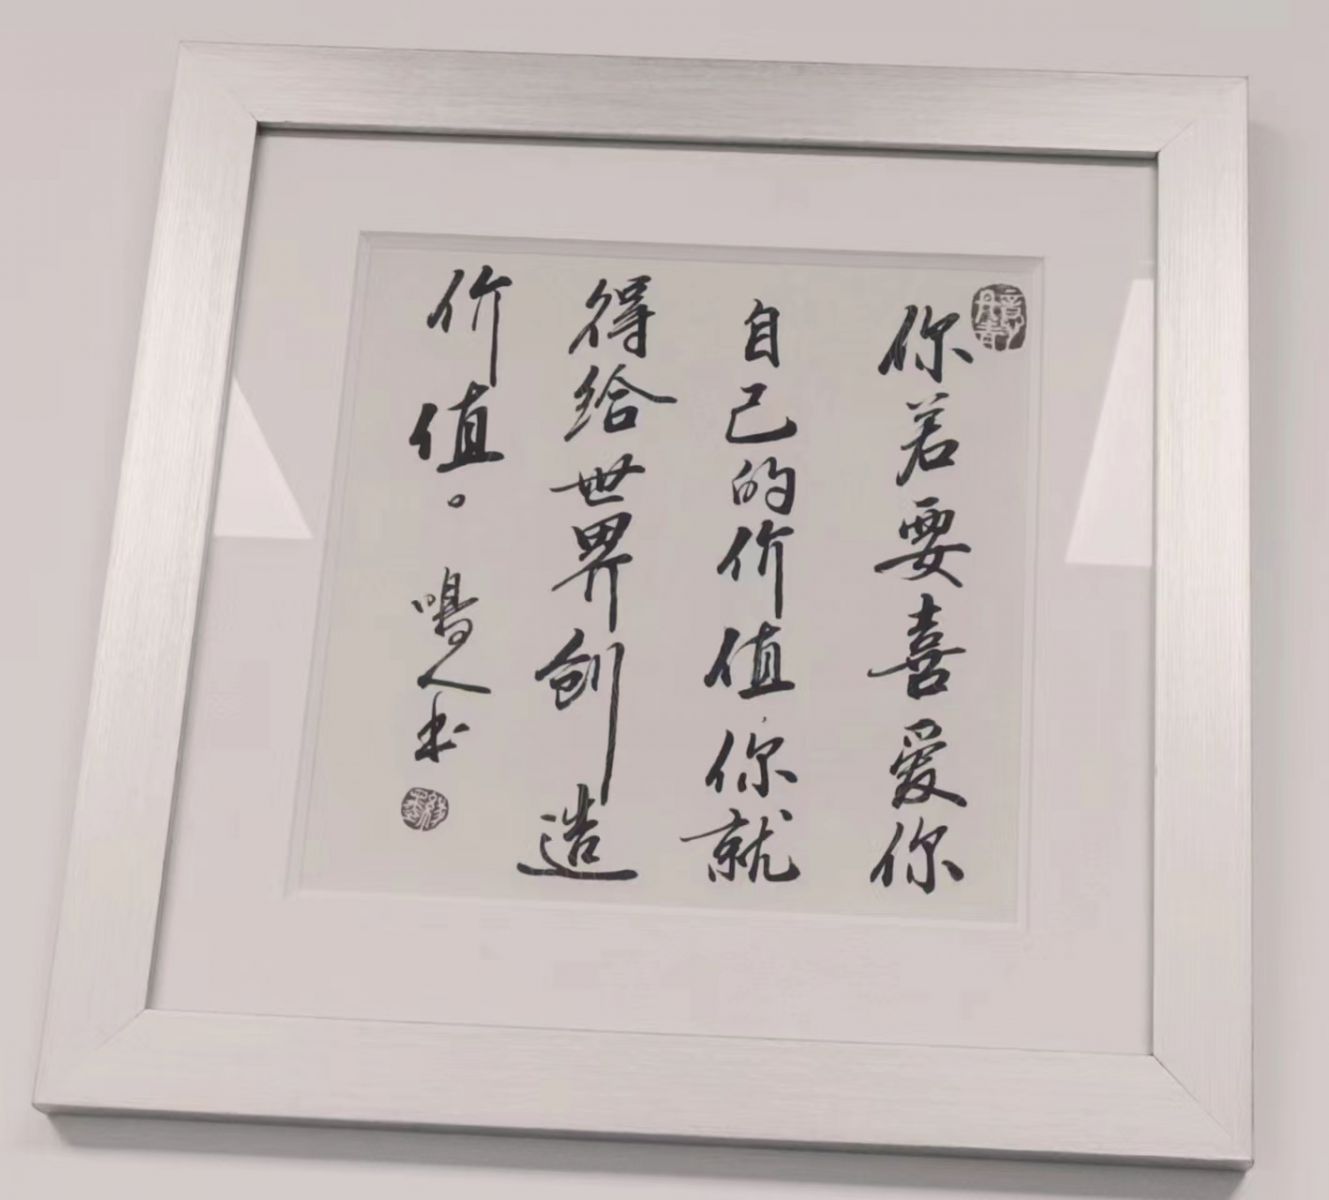 你若要喜爱你
自己的价值你就
得给世界创造
价值。
鸣人书